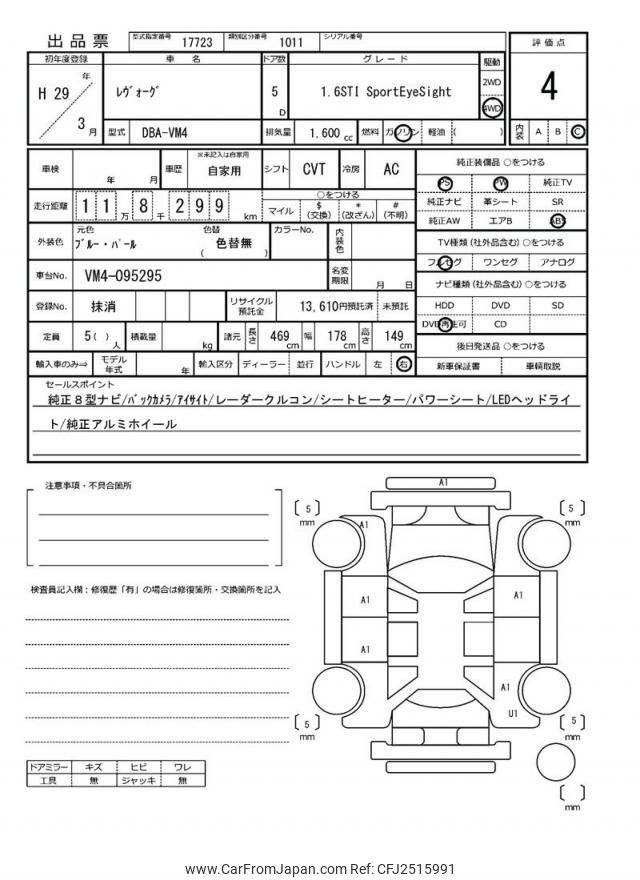 出品票
型式指定番号 17723 類別区分番号 1011 シリアル番号
初年度登録 車名 ドア数 グレード 駆動 評価点
H 29 年 3 月
ﾚｳﾞｫｰｸﾞ 5 D 1.6STI SportEyeSight 2WD 4WD
4
型式 DBA-VM4 排気量 1.600 cc 燃料 ガソリン 軽油 ( )
内装 A B C
車検 年 月 車歴 ※未記入は自家用 自家用 シフト CVT 冷房 AC
走行距離 11万8千299 km
○をつける
マイル $(交換) *(改ざん) #(不明)
外装色 元色 ブルー・パール 色替 ( 色替無 ) カラーNo. 内装色
車台No. VM4-095295 名変期限 月 日
登録No. 抹消 リサイクル預託金 13,610円預託済 未預託
定員 5( ) 人 積載量 kg 諸元 長さ 469 cm 幅 178 cm 高さ 149 cm
輸入車のみ⇒ モデル年式 年 輸入区分 ディーラー 並行 ハンドル 左 右
純正装備品 ○をつける
PS PW 純正TV
純正ナビ 革シート SR
純正AW エアB ABS
TV種類(社外品含む)○をつける
フルセグ ワンセグ アナログ
ナビ種類(社外品含む)○をつける
HDD DVD SD
DVD再生可 CD
後日発送品 ○をつける
新車保証書 車輌取説
セールスポイント
純正８型ナビ/ﾊﾞｯｸｶﾒﾗ/ｱｲｻｲﾄ/レーダークルコン/シートヒーター/パワーシート/LEDヘッドライ
ト/純正アルミホイール
注意事項・不具合箇所
検査員記入欄：修復歴「有」の場合は修復箇所・交換箇所を記入
ドアミラー キズ ヒビ ワレ
工具 無 ジャッキ 無
A1
[ 5 ] mm
[ 5 ] mm
A1
A1
A1
A1
A1
U1
[ 5 ] mm
[ 5 ] mm
[ ] mm
www.CarFromJapan.com Ref: CFJ2515991